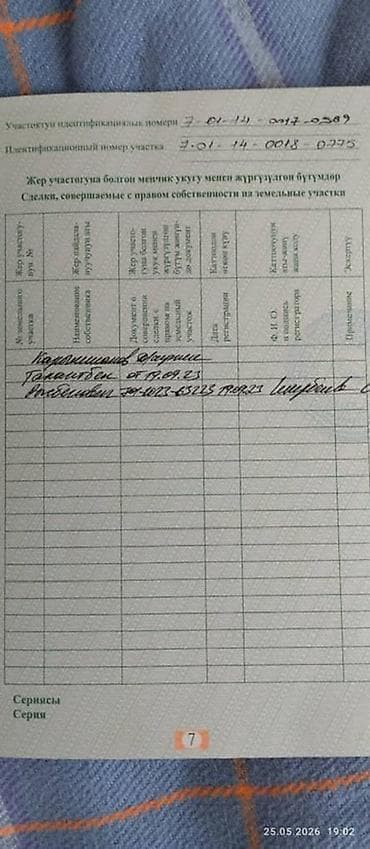 Участоктун идентификациялык номери 7-01-14-0017-0589
Идентификационный номер участка 7-01-14-0018-0775
Жер участогуна болгон менчик укугу менен жүргүзүлгөн бүтүмдөр
Сделки, совершаемые с правом собственности на земельные участки
Жер участогунун №
Жер пайдалануучунун аты
Жер участогуна болгон укук менен жүргүзүлгөн бүтүм жөнүндө документ
Каттоодон өткөн күнү
Каттоочунун аты-жөнү жана колу
Эскертүү
№ земельного участка
Наименование собственника
Документ о совершении сделки с правом на земельный участок
Дата регистрации
Ф. И. О. и подпись регистратора
Примечание
Таалайбек от 19.09.23
19.09.23
Сериясы
Серия
7
25.05.2026 19:02